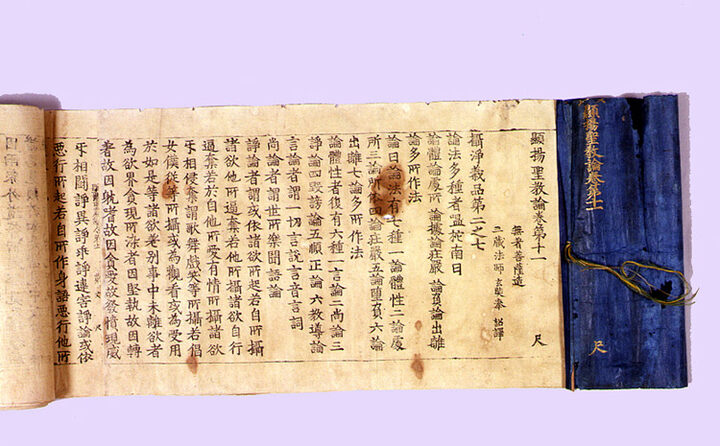 顯揚聖教論卷第十一
尺
顯揚聖教論卷第十一 尺
無着菩薩造
三藏法師玄奘奉 詔譯
攝淨義品第二之七
論法多種者嗢柁南曰
論體論處所 論據論莊嚴 論負論出離
論多所作法
論曰論法有七種一論體性二論處
所三論所依四論莊嚴五論墮負六論
出離七論多所作法
論體性者復有六種一言論二尚論三
諍論四毀謗論五順正論六教導論
言論者謂一切言說言音言詞
尚論者謂世所樂聞語論
諍論者謂或依諸欲所起若自所攝
諸欲他所逼奪若他所攝諸欲自行
逼奪若於自他所愛有情所攝諸欲
㸦相侵奪謂歌舞戲笑等所攝若倡
女僕從等所攝或為觀看或為受用
於如是等諸欲差別事中未離欲者
為欲界貪現所染者因堅執故因轉
著故因躭嗜故因貪愛故發憤現威
㸦相鬪諍異諍乖諍違害諍論或依
惡行所起若自所作身語惡行他所